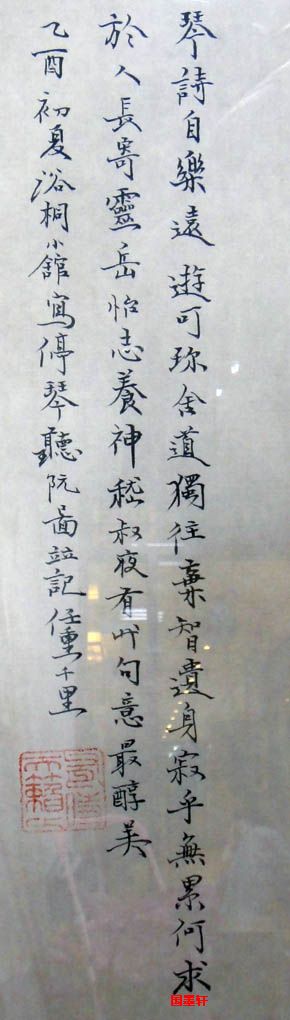 琴詩自樂遠遊可珎舍道獨往棄智遺身寂乎無累何求
於人長寄靈岳怡志養神嵇叔夜有此句意最醇美
乙酉初夏浴桐小館寫停琴聽阮啚竝記任重千里
国墨轩